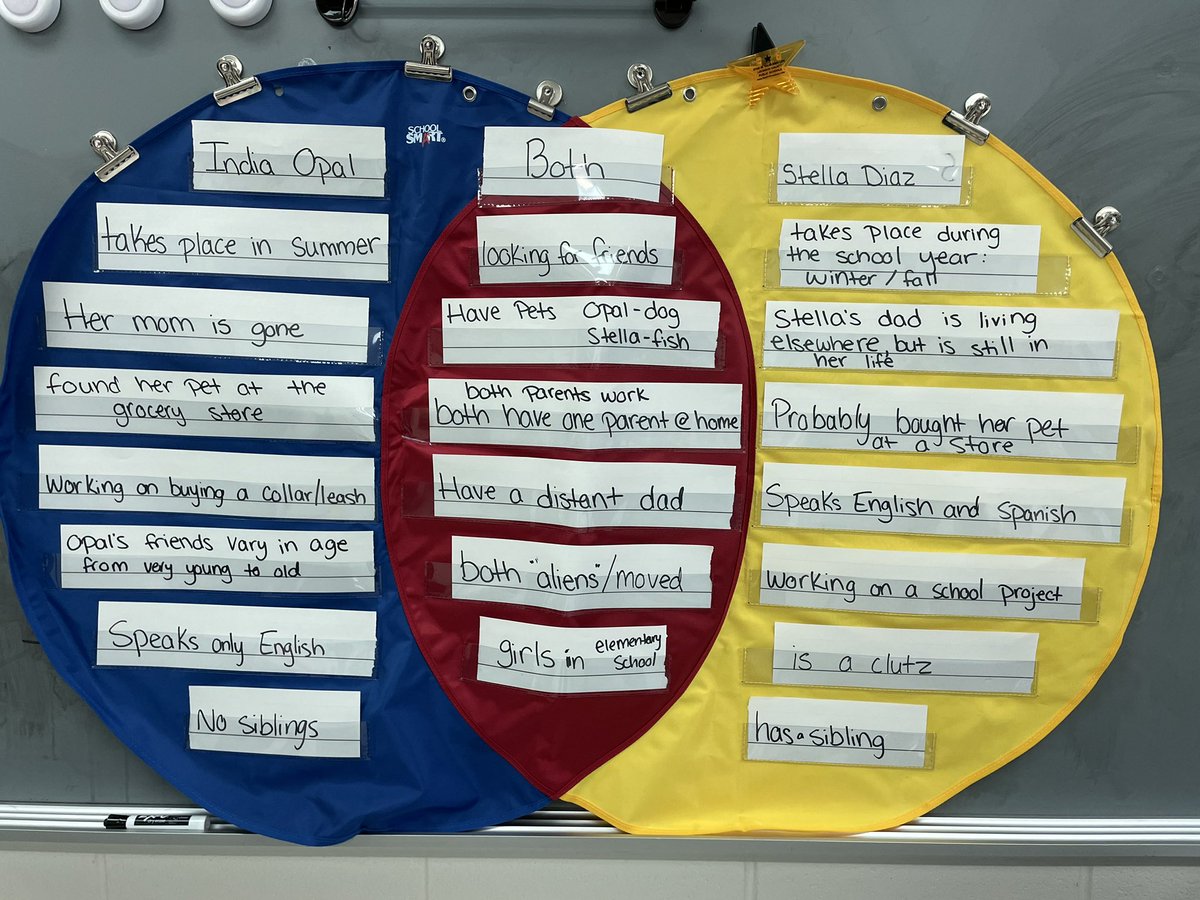 SCHOOL
SMART
India Opal
takes place in summer
Her mom is gone
found her pet at the
grocery store
Working on buying a collar/leash
Opal's friends vary in age
from very young to old
Speaks only English
No siblings
Both
looking for friends
Have Pets Opal-dog
Stella-fish
both parents work
both have one parent @ home
Have a distant dad
both "aliens"/moved
girls in elementary
school
Stella Diaz
takes place during
the school year:
winter/fall
Stella's dad is living
elsewhere, but is still in
her life
Probably bought her pet
at a store
Speaks English and Spanish
working on a school project
is a clutz
has a sibling